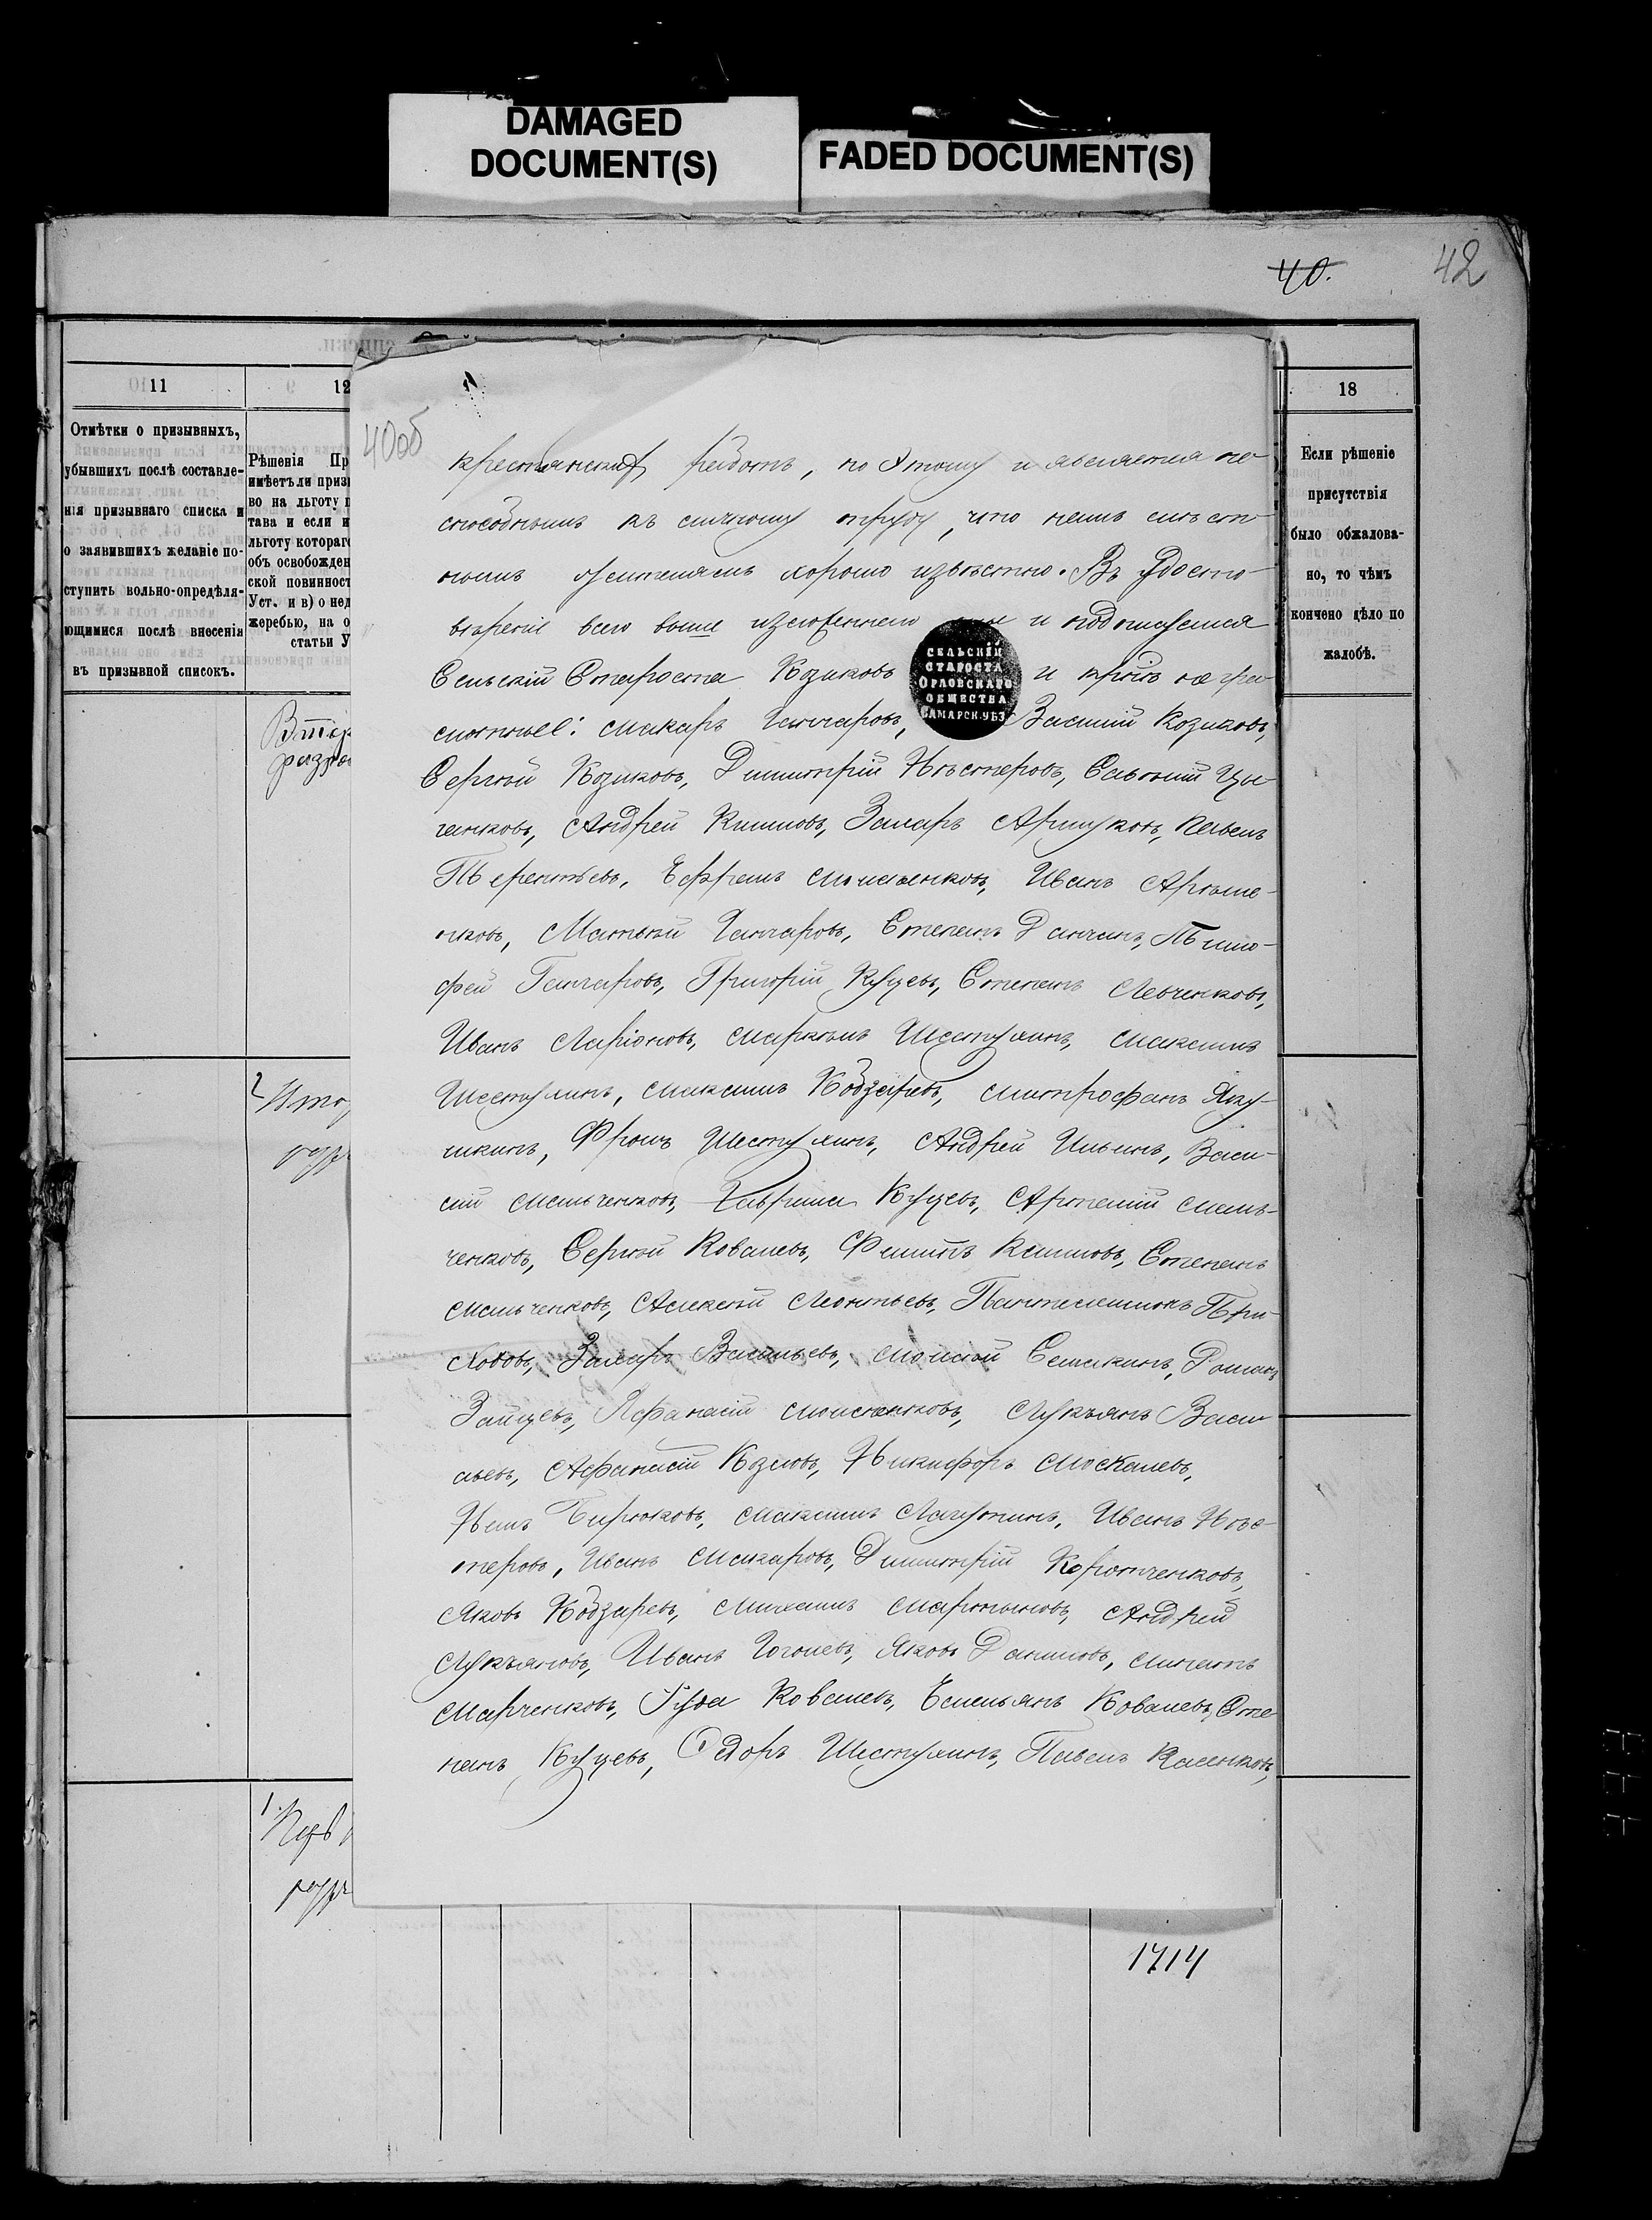 DAMAGED
DOCUMENT(S)
FADED DOCUMENT(S)
40.
42
11
12
18
Отмѣтки о призывныхъ,
убывшихъ послѣ составле-
нія призывнаго списка и
о заявившихъ желаніе по-
ступить вольно-опредѣля-
ющимися послѣ внесенія
въ призывной списокъ.
Рѣшенія Пр
имѣетъ ли приз
во на льготу п
тава и если и
льготу котораго
объ освобожден
ской повинност
Уст. и в) о нед
жеребью, на о
статьи У
Если рѣшеніе
присутствія
было обжалова-
но, то чѣмъ
кончено дѣло по
жалобѣ.
40об
крестьянских работъ, по этому и является не-
способнымъ къ сичному труду, что намъ мѣст-
нымъ жителямъ хорошо извѣстно. Въ удосто-
вѣреніе всего выше изложеннаго и подписуемся
Сельскій Староста Козиковъ и кромѣ негра-
мотные: Макаръ Ганчаровъ, Василій Козиковъ,
СЕЛЬСКІЙ
СТАРОСТА
ОРЛОВСКАГО
ОБЩЕСТВА
САМАРСК. УѢЗ
Сергѣй Козиковъ, Димитрій Нѣстеровъ, Савелий Цы-
ганковъ, Андрей Климовъ, Захаръ Павелъ
Терентьевъ, Ефремъ Моисѣенковъ, Иванъ
Матвѣй Ганчаровъ, Степанъ Тимо-
фей Ганчаровъ, Григорій Куцевъ, Степанъ Левченковъ,
Иванъ Ларіоновъ, Маркелъ Шестухинъ, Максимъ
Шестухинъ, Максимъ Кобзаревъ, Митрофанъ Яку-
шкинъ, Фролъ Шестухинъ, Андрей Ильинъ, Васи-
лій Мельченковъ, Гаврила Куцевъ, Артемій Мель-
ченковъ, Сергѣй Ковалевъ, Филипъ Климовъ, Степанъ
Мельченковъ, Алексѣй Леонтьевъ, Пантелеимонъ При-
ходовъ, Захаръ Васильевъ, Моисѣй Семакинъ, Романъ
Зайцевъ, Афанасій Моисѣенковъ, Лукъянъ Васи-
льевъ, Афанасій Козловъ, Никифоръ Москалевъ,
Наумъ Бирюковъ, Максимъ Лагутинъ, Иванъ Нѣс-
теровъ, Иванъ Макаровъ, Димитрій Коротченковъ,
Яковъ Кобзаревъ, Михаилъ Мартыновъ, Андрей
Лукъяновъ, Иванъ Гоголевъ, Яковъ Даниловъ, Игнатъ
Марченковъ, Гурѣй Ковалевъ, Емельянъ Ковалевъ, Сте-
панъ Куцевъ, Ѳедоръ Шестухинъ, Павелъ
1714